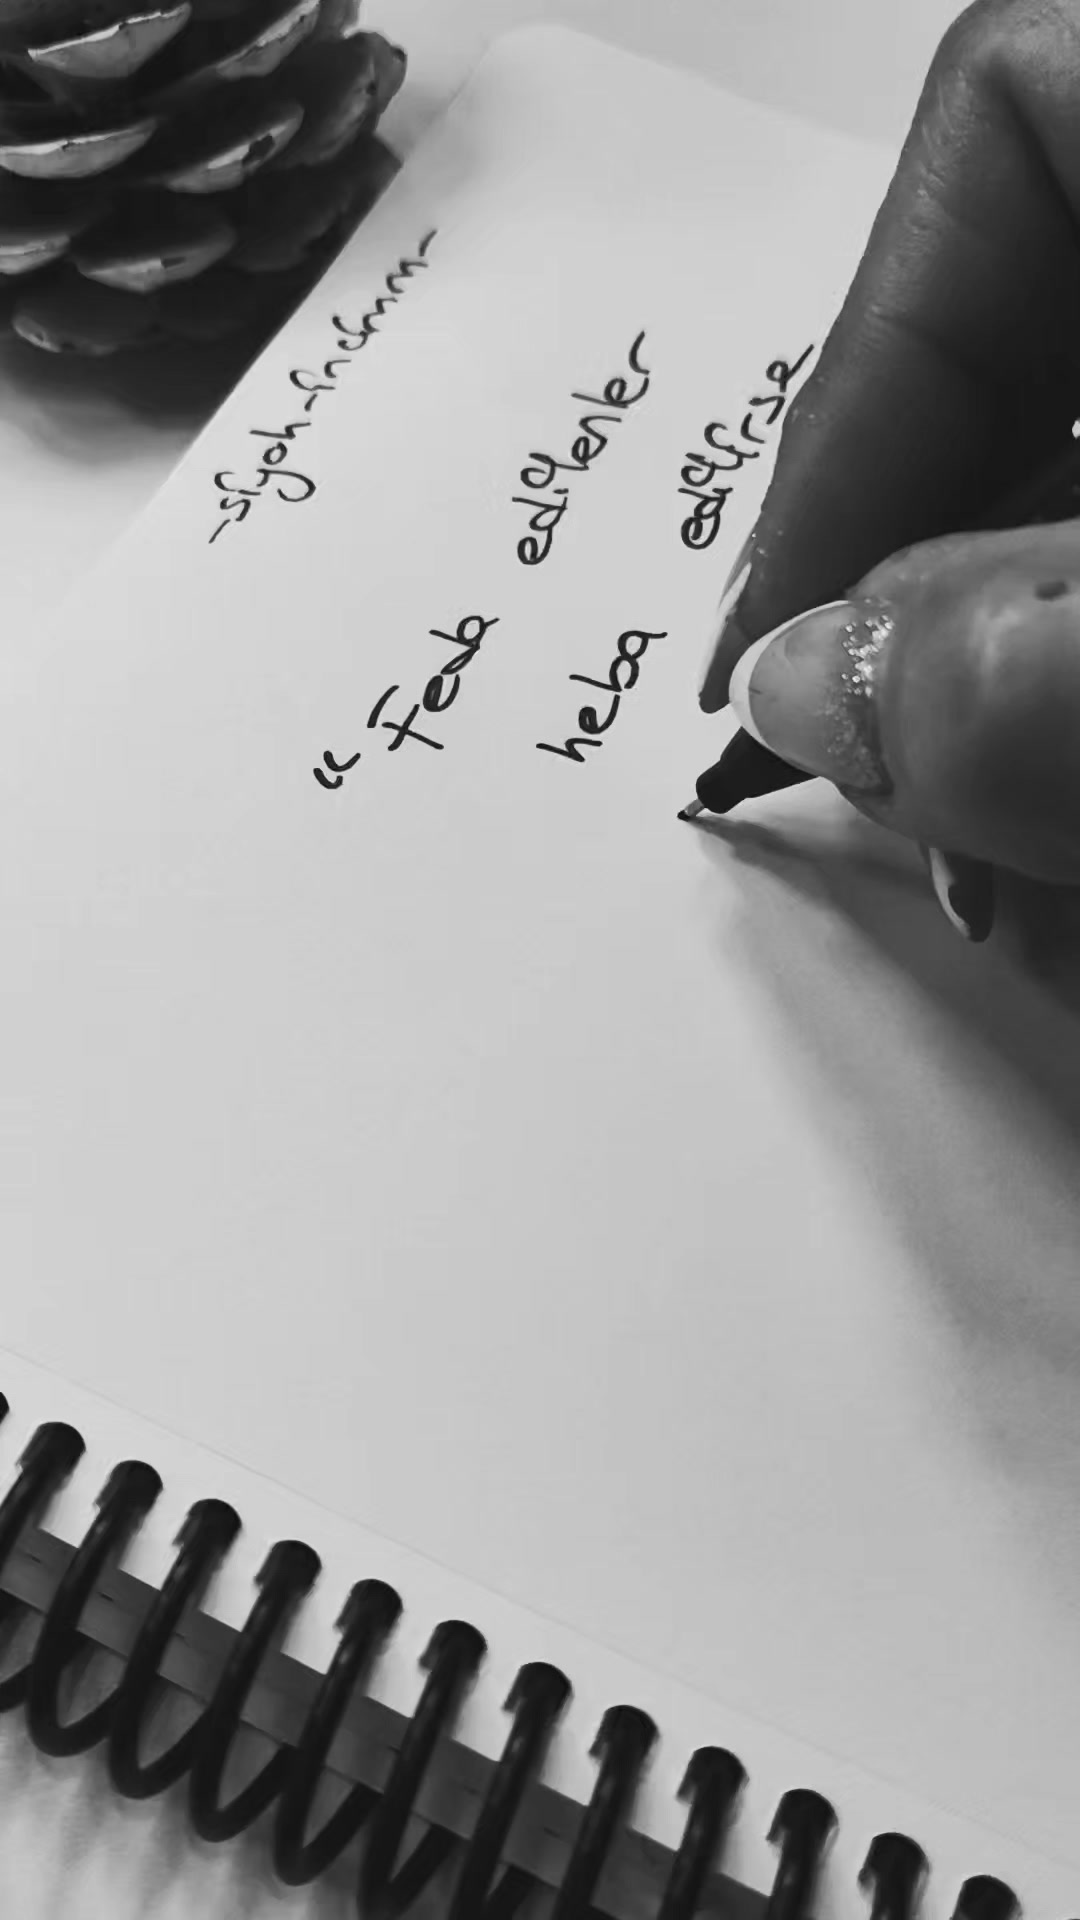 -siyah-incimm-
“Feda edilenler
heba edilirse